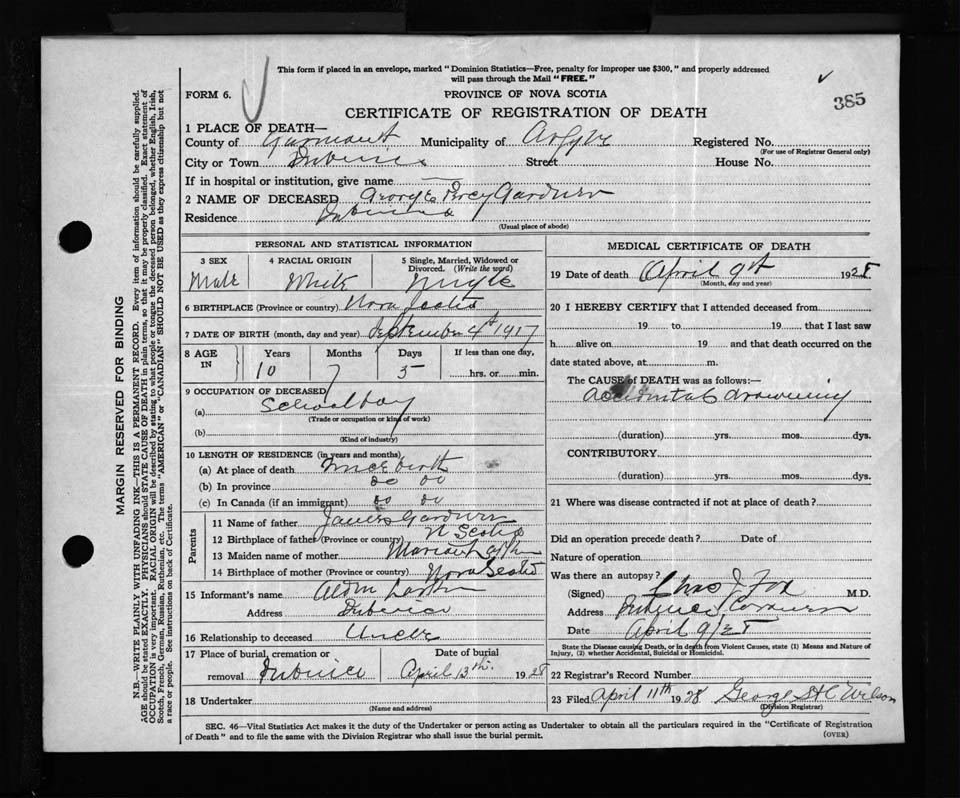 This form if placed in an envelope, marked "Dominion Statistics—Free, penalty for improper use $300," and properly addressed
will pass through the Mail "FREE."
385
FORM 6.
PROVINCE OF NOVA SCOTIA
CERTIFICATE OF REGISTRATION OF DEATH
1 PLACE OF DEATH—
County of Yarmouth Municipality of Argyle Registered No.
(For use of Registrar General only)
City or Town Street House No.
If in hospital or institution, give name
2 NAME OF DECEASED George Percy Gardner
Residence
(Usual place of abode)
PERSONAL AND STATISTICAL INFORMATION
3 SEX 4 RACIAL ORIGIN 5 Single, Married, Widowed or Divorced. (Write the word)
Male White Single
6 BIRTHPLACE (Province or country) Nova Scotia
7 DATE OF BIRTH (month, day and year) September 4th 1917
8 AGE IN Years Months Days If less than one day,
10 7 5 hrs. or min.
9 OCCUPATION OF DECEASED
(a) Schoolboy
(Trade or occupation or kind of work)
(b)
(Kind of industry)
10 LENGTH OF RESIDENCE (in years and months)
(a) At place of death Since birth
(b) In province do do
(c) In Canada (if an immigrant) do do
Parents
11 Name of father James Gardner
12 Birthplace of father (Province or country) N Scotia
13 Maiden name of mother
14 Birthplace of mother (Province or country) Nova Scotia
15 Informant's name Larkin
Address
16 Relationship to deceased Uncle
17 Place of burial, cremation or removal Date of burial
April 13th. 1928
18 Undertaker
(Name and address)
MEDICAL CERTIFICATE OF DEATH
19 Date of death April 9th 1928
(Month, day and year)
20 I HEREBY CERTIFY that I attended deceased from
19 to 19 that I last saw
h alive on 19 and that death occurred on the
date stated above, at m.
The CAUSE of DEATH was as follows:—
Accidental drowning
(duration) yrs. mos. dys.
CONTRIBUTORY
(duration) yrs. mos. dys.
21 Where was disease contracted if not at place of death?
Did an operation precede death? Date of
Nature of operation
Was there an autopsy?
(Signed) Chas J Fox M.D.
Address Coroner
Date April 9/28
State the Disease causing Death, or in death from Violent Causes, state (1) Means and Nature of
Injury, (2) whether Accidental, Suicidal or Homicidal.
22 Registrar's Record Number
23 Filed April 11th 1928 George St C Wilson
(Division Registrar)
SEC. 46—Vital Statistics Act makes it the duty of the Undertaker or person acting as Undertaker to obtain all the particulars required in the "Certificate of Registration
of Death" and to file the same with the Division Registrar who shall issue the burial permit.
(OVER)
MARGIN RESERVED FOR BINDING
N.B.—WRITE PLAINLY WITH UNFADING INK—THIS IS A PERMANENT RECORD. Every item of information should be carefully supplied.
AGE should be stated EXACTLY. PHYSICIANS should STATE CAUSE OF DEATH in plain terms, so that it may be properly classified. Exact statement of
OCCUPATION is very important. RACIAL ORIGIN will be described by stating to what people or tongue the deceased person belonged, whether English, Irish,
Scotch, French, German, Russian, Ruthenian, etc. The terms "AMERICAN" or "CANADIAN" SHOULD NOT BE USED as they express citizenship but not
a race or people. See instructions on back of Certificate.